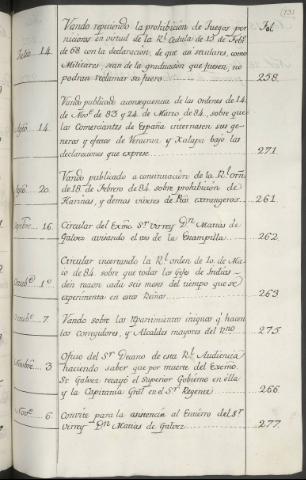 Fol.
Vando repitiendo la prohibicion de Juegos per-
niciosos en virtud de la Rl. Cedula de 13 de Febº
de 68 con la declaración, de que asi seculares, como
Militares, sean de la graduacion que fuesen, no
podran reclamar su fuero
Julio 14. 258.
Vando publicado a consequencia de las Ordenes de 14.
de Novre de 83 y 24 de Marzo, de 84, sobre que
los Comerciantes de España internasen sus ge-
neros y efectos de Veracruz y Xalapa bajo las
declaraciones que exprese
Agto 14. 271.
Vando publicado a continuacion de la Rl. Orñ
de 18. de Febrero de 84. sobre prohibicion de
Harinas, y demas viveres de Pais extrangeros
Agto 20. 261.
Circular del Exmo Sr Virrey Dn Matias de
Galvez avisando el uso de la Estampilla
16. 262.
Circular insertando la Rl. orden de 10. de Ma-
io de 84. sobre que todos los Gefes de Indias
den razon cada seis meses del tiempo que se
experimenta en estos Reinos
1º 263
Vando sobre los Repartimientos iniquos q hacen
los corregidores, y Alcaldes mayores del Rno
7. 275
Oficio del Sr Decano de esta Rl. Audiencia
haciendo saber que por muerte del Exmo
Sr Galvez recayó el Superior Gobierno en ella
y la Capitania Gral en el Sr Regente
3 266
Convite para la asistencia al Entierro del Sr
Virrey Dn Matias de Galvez
Nove 6 277.